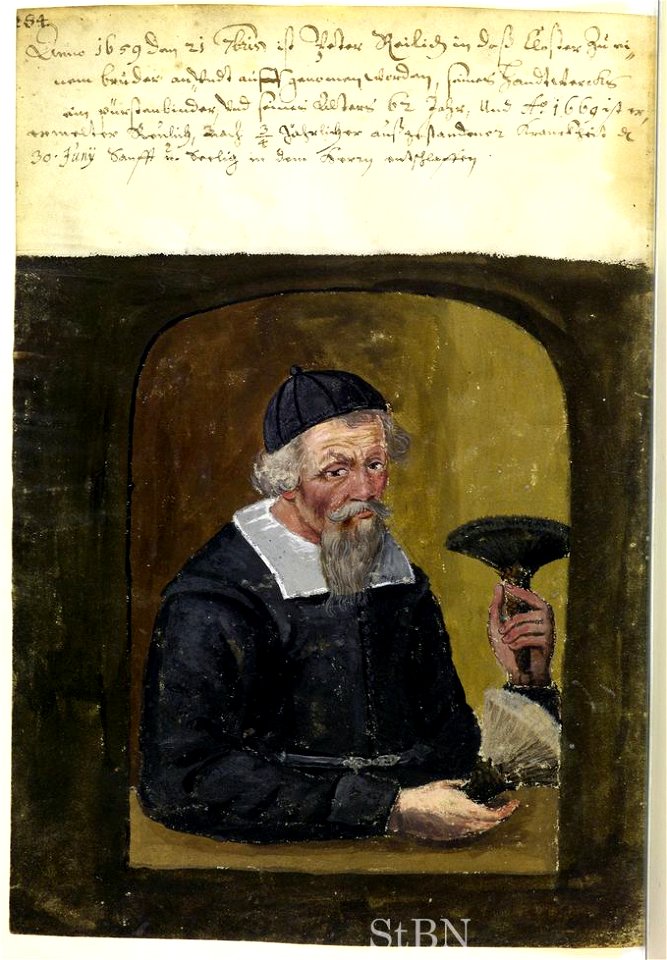 184.
Anno 1659 den 21 7bris ist Peter Reilich in daß Closter Zu ei-
nem bruder anstadt auffgenomen worden, seines Handtwercks
ein pürstenbinder, Vnd seines Alters 62 Jahr, Und Aº. 1669 ist er,
ermelter Reulich, Nach 3/4 Jährlicher außgestandener Kranckheit d
30. Junÿ Sanfft u. Seelig in dem Herrn entschlaffen.
StBN